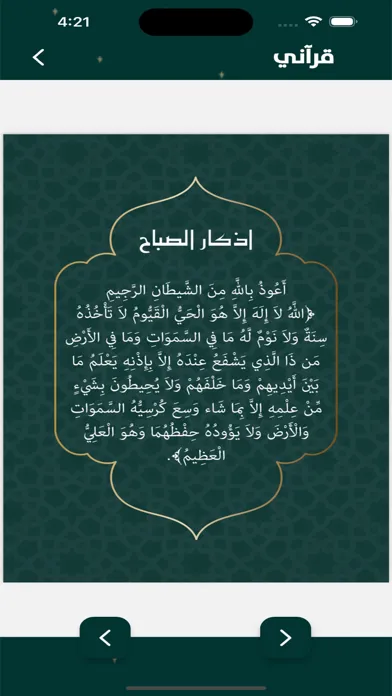 4:21
قرآني
اذكار الصباح
أَعُوذُ بِاللَّهِ مِنَ الشَّيطَانِ الرَّجِيمِ
﴿اللَّهُ لاَ إِلَهَ إِلاَّ هُوَ الْحَيُّ الْقَيُّومُ لاَ تَأْخُذُهُ
سِنَةٌ وَلاَ نَوْمٌ لَّهُ مَا فِي السَّمَوَاتِ وَمَا فِي الأَرْضِ
مَن ذَا الَّذِي يَشْفَعُ عِنْدَهُ إِلاَّ بِإِذْنِهِ يَعْلَمُ مَا
بَيْنَ أَيْدِيهِمْ وَمَا خَلْفَهُمْ وَلاَ يُحِيطُونَ بِشَيْءٍ
مِّنْ عِلْمِهِ إِلاَّ بِمَا شَاء وَسِعَ كُرْسِيُّهُ السَّمَوَاتِ
وَالْأَرْضَ وَلاَ يَؤُودُهُ حِفْظُهُمَا وَهُوَ الْعَلِيُّ
الْعَظِيمُ﴾.